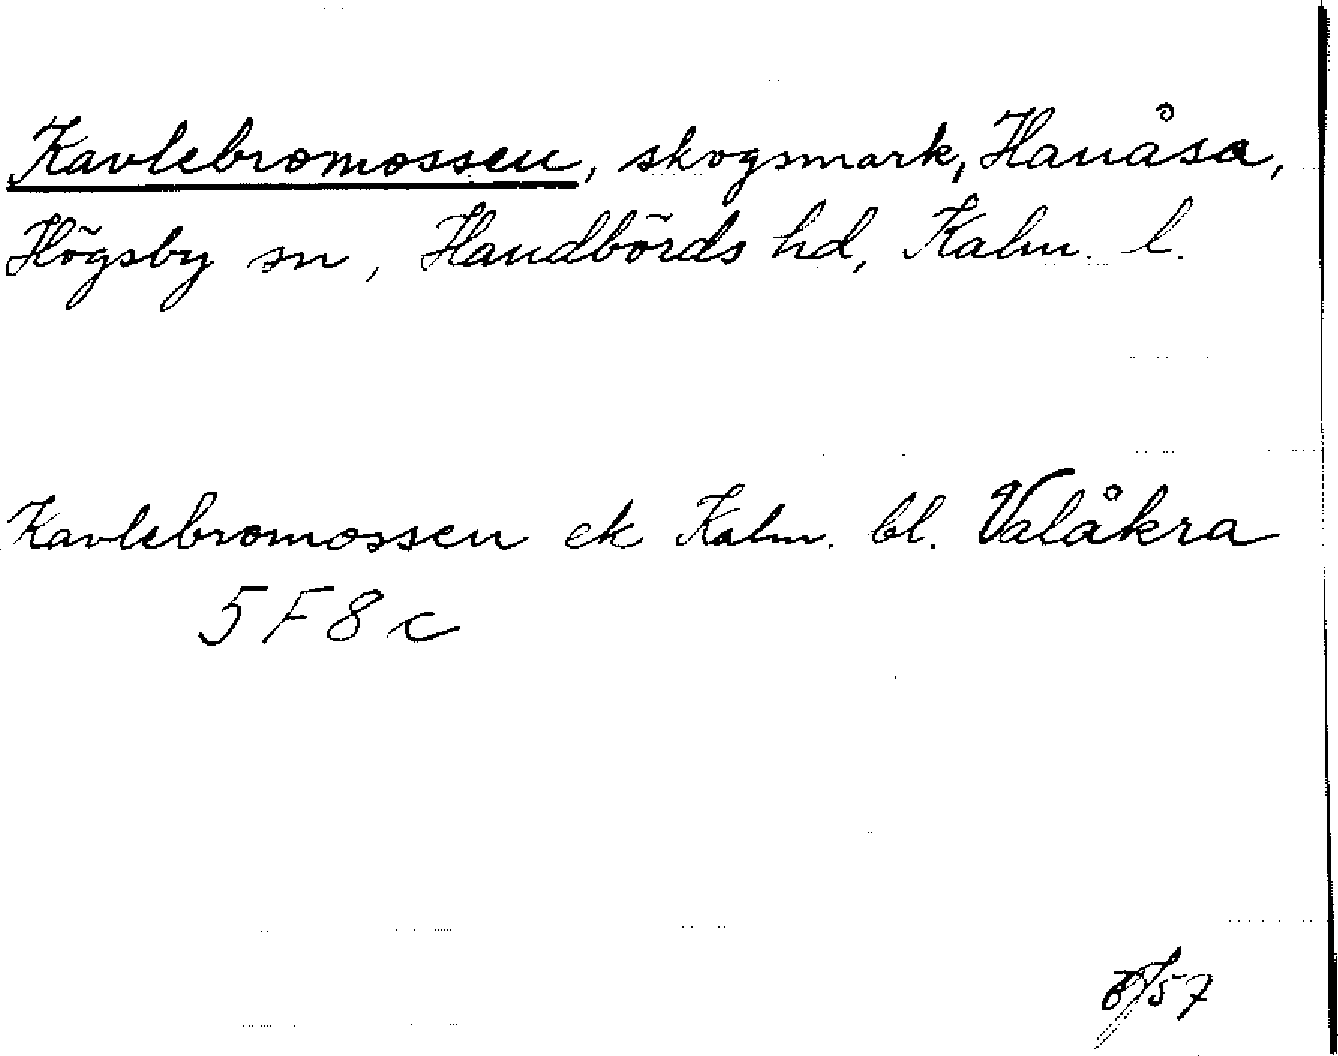 Kavlebromossen, skogsmark, Hanåsa,
Högsby sn, Handbörds hd, Kalm. l.
Kavlebromossen ek Kalm. bl. Valåkra
5 F 8 c
57